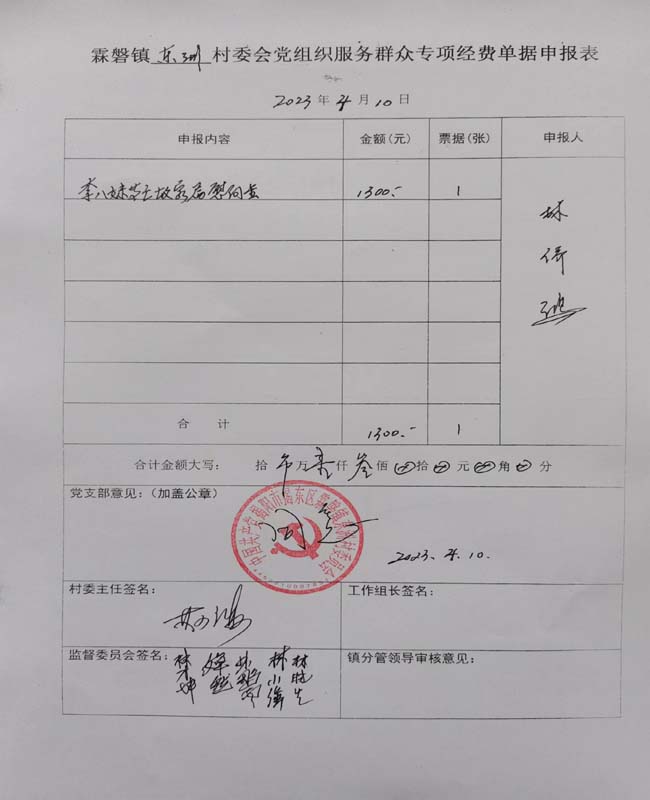 霖磐镇 东洲 村委会党组织服务群众专项经费单据申报表
2023 年 4 月 10 日
申报内容 金额(元) 票据(张) 申报人
李八妹等 故家属慰问金 1300.- 1
林
合 计 1300.- 1
合计金额大写: 拾 万 壹 仟 叁 佰 拾 元 角 分
党支部意见:(加盖公章)
中国共产党揭阳市揭东区霖磐镇东洲村委员会
同意
2023.4.10.
村委主任签名: 工作组长签名:
监督委员会签名: 镇分管领导审核意见: